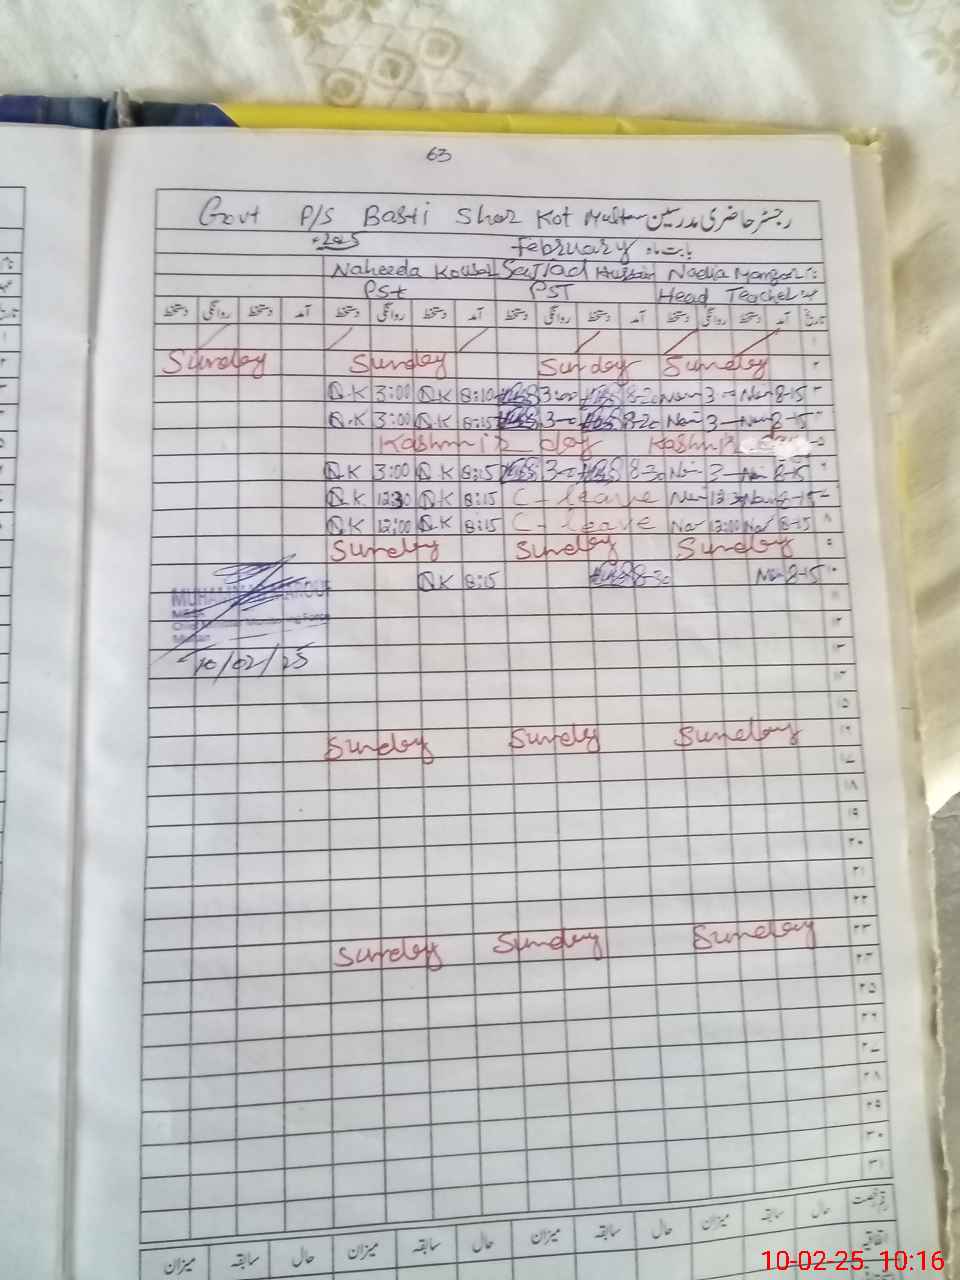 63
Govt P/S Basti Sher Kot Multan رجسٹر حاضری مدرسین
2025 February بابت ماہ
Naheeda Kousar Sajjad Hussain Nadia Manzoor
PST PST Head Teacher
دستخط روانگی دستخط آمد دستخط روانگی دستخط آمد دستخط روانگی دستخط آمد دستخط روانگی دستخط آمد تاریخ
۱
Sunday Sunday Sunday Sunday ۲
N.K 3:00 N.K 8:10 3:00 8-30 3 8-15 ۳
N.K 3:00 N.K 8:15 3-0 8-30 3 8-15 ۴
Kashmir day Kashmir ۵
N.K 3:00 N.K 8:15 3-0 8-30 3 8-15 ۶
N.K 12:30 N.K 8:15 C-leave 12:30 8-15 ۷
N.K 12:00 N.K 8:15 C-leave 12:00 8-15 ۸
Sunday Sunday Sunday ۹
N.K 8:15 8-30 8-15 ۱۰
MUHAMMAD
10/02/25
۱۱
۱۲
۱۳
۱۴
۱۵
Sunday Sunday Sunday ۱۶
۱۷
۱۸
۱۹
۲۰
۲۱
۲۲
Sunday Sunday Sunday ۲۳
۲۴
۲۵
۲۶
۲۷
۲۸
۲۹
۳۰
۳۱
میزان سابقہ حال میزان سابقہ حال میزان سابقہ حال میزان سابقہ حال قسم رخصت
اتفاقیہ
10-02-25 10:16